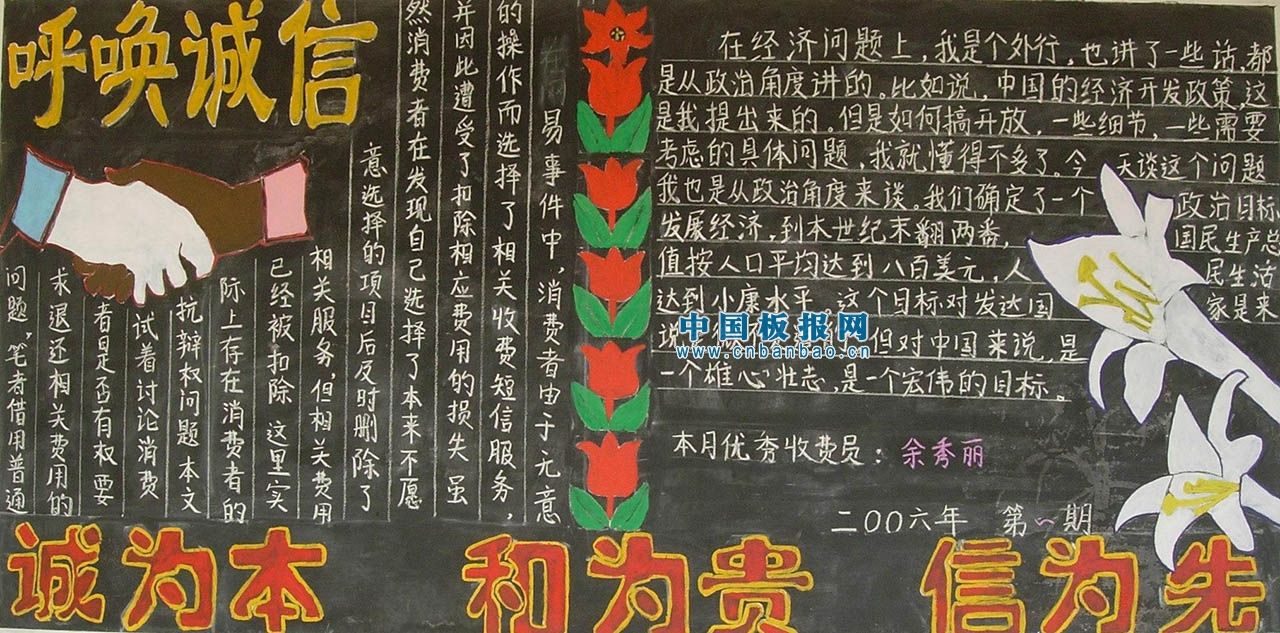 呼唤诚信
易事件中，消费者由于无意
的操作而选择了相关收费短信服务，
并因此遭受了扣除相应费用的损失 虽
然消费者在发现自己选择了本来不愿
意选择的项目后及时删除了
相关服务，但相关费用
已经被扣除 这里实
际上存在消费者的
抗辩权问题 本文
试着讨论消费
者是否有权要
求退还相关费用的
问题，笔者借用普通
在经济问题上，我是个外行，也讲了一些话，都
是从政治角度讲的。比如说，中国的经济开发政策，这
是我提出来的。但是如何搞开放，一些细节，一些需要
考虑的具体问题，我就懂得不多了。今天谈这个问题
我也是从政治角度来谈。我们确定了一个政治目标
发展经济，到本世纪末翻两番，国民生产总
值按人口平均达到八百美元，人民生活
达到小康水平，这个目标对发达国家是来
说 但对中国来说，是
一个雄心壮志，是一个宏伟的目标。
中国板报网
www.cnbanbao.cn
本月优秀收费员：余秀丽
二〇〇六年 第一期
诚为本 和为贵 信为先